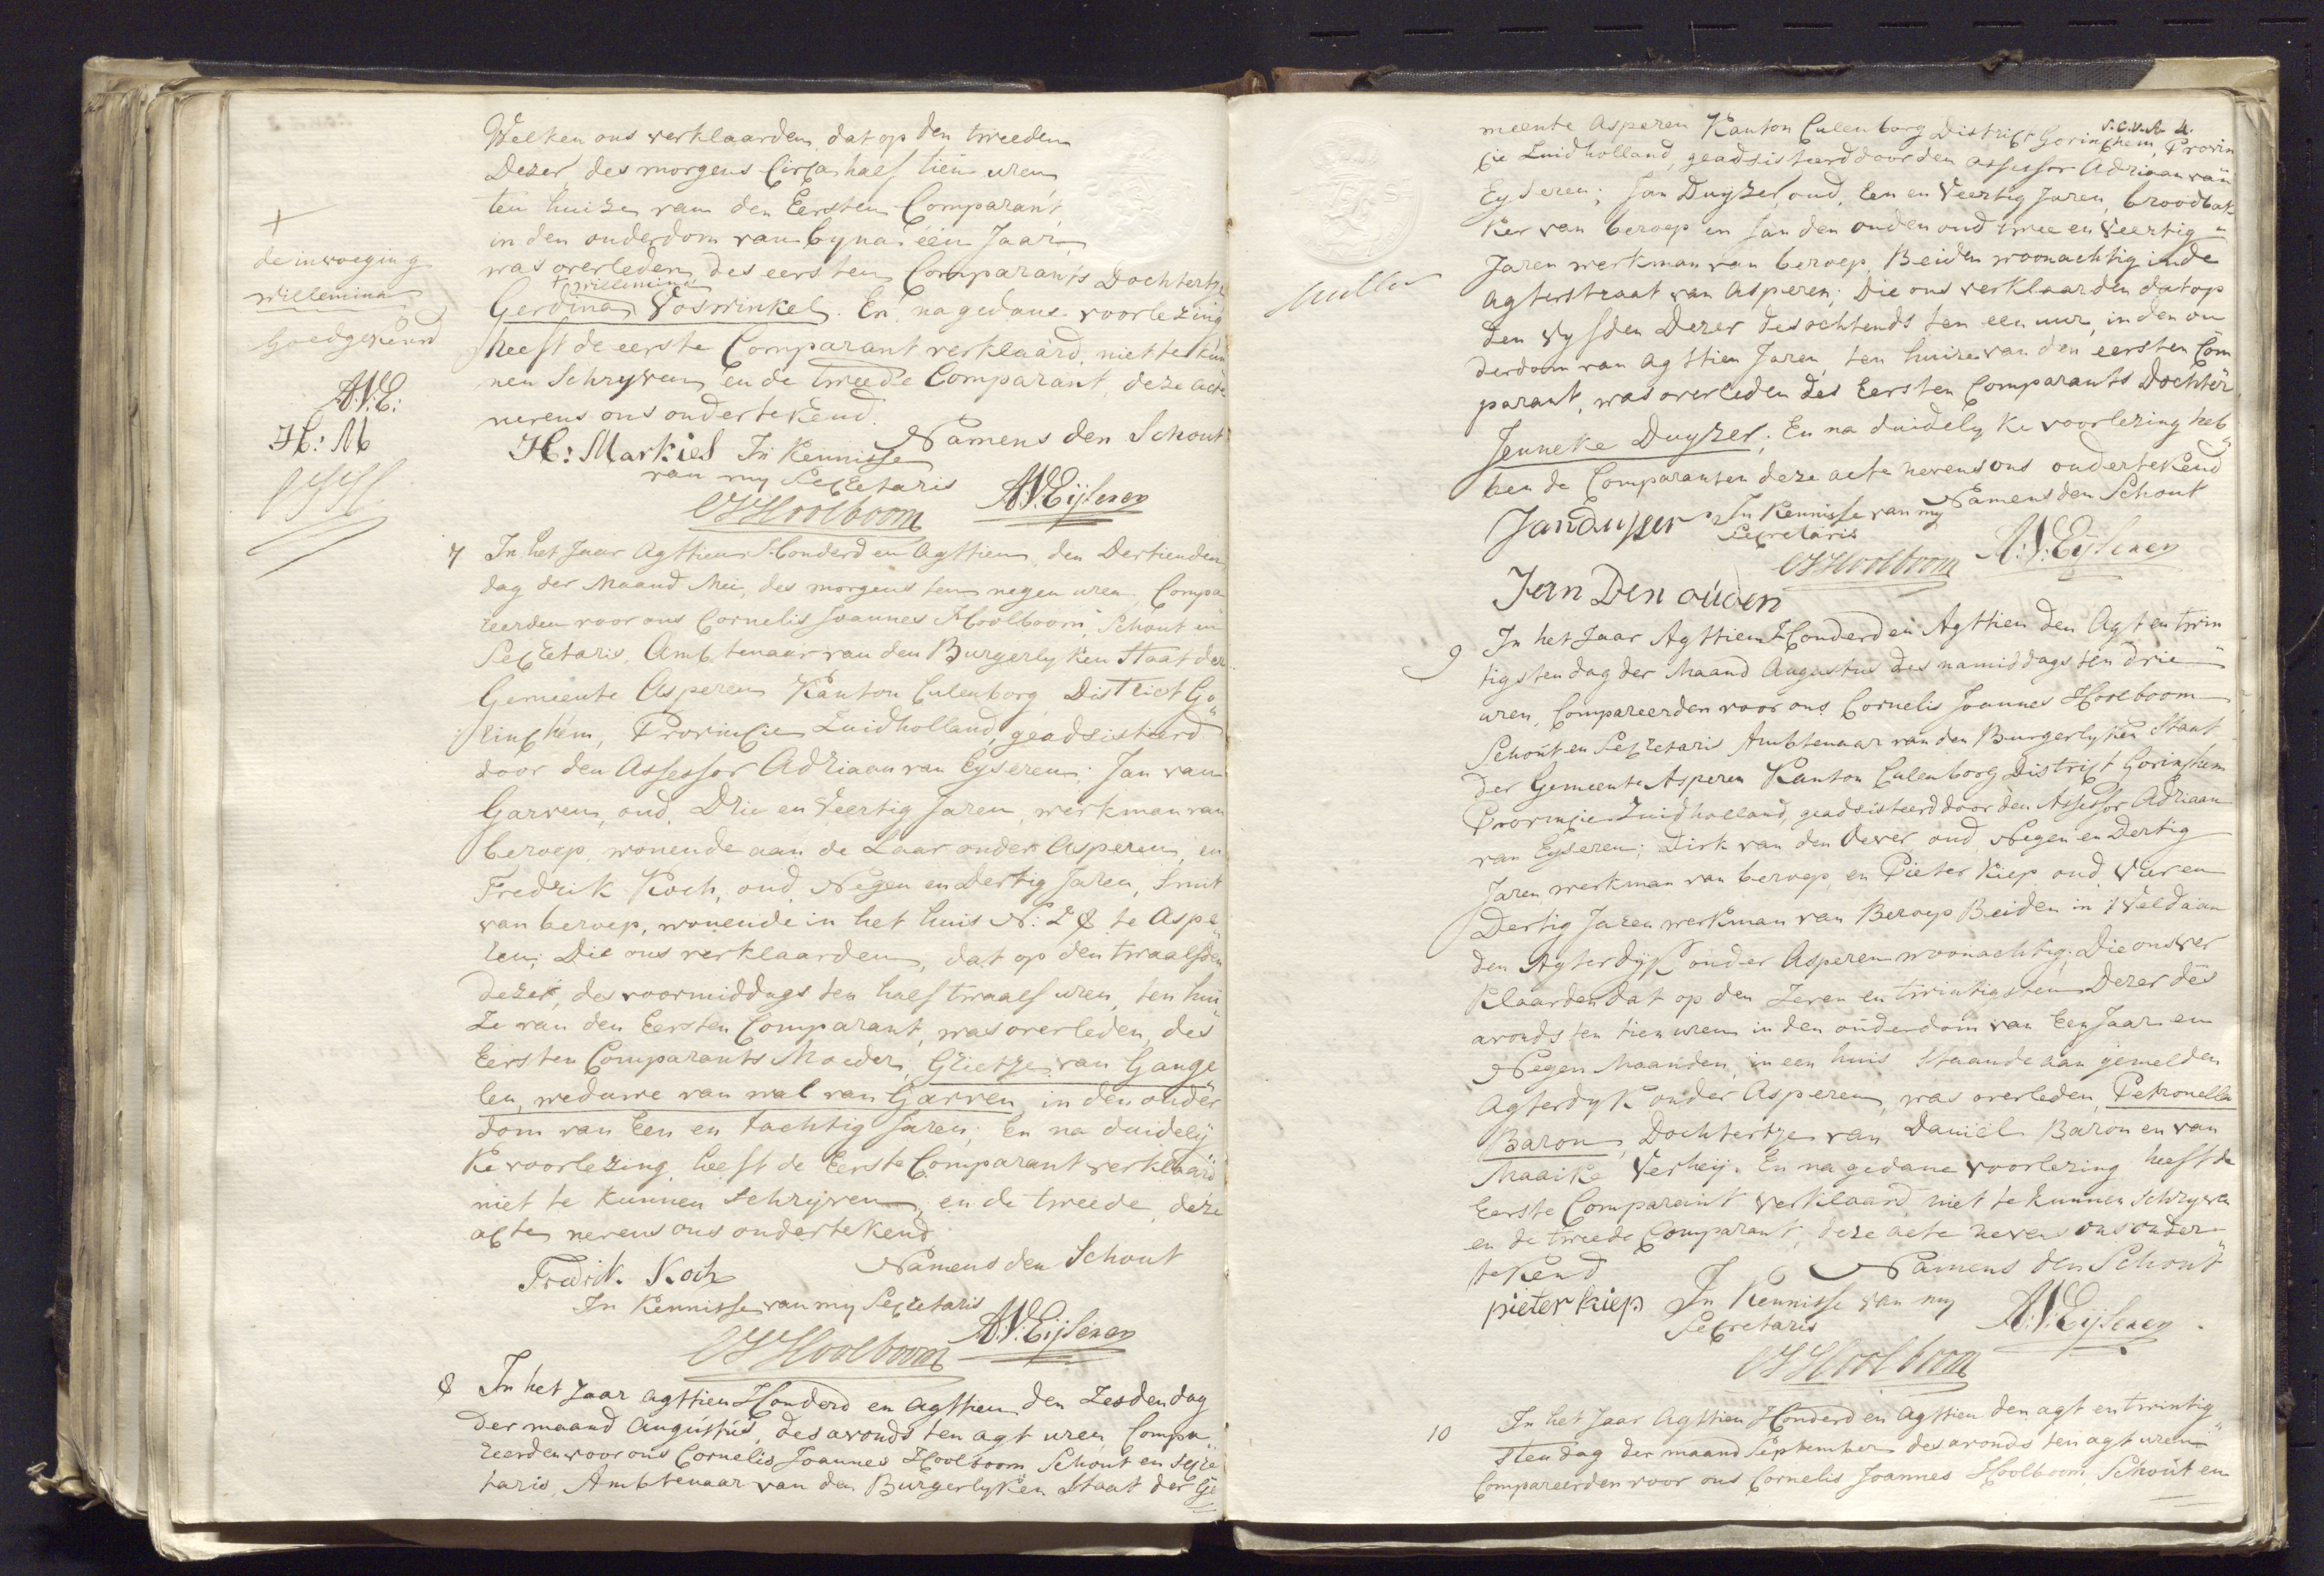 Welken ons verklaarden, dat op den tweeden
Dezer, des morgens Circa half tien uren,
ten huize van den Eersten Comparant,
in den ouderdom van byna één Jaar,
was overleden, des eersten Comparants Dochtertje
+ Willemina
Gerdina Voswinkel. En na gedane voorlezing
heeft de eerste Comparant verklaard, niet te kun
nen Schryven, en de tweede Comparant, deze acte
nevens ons ondertekend.
+
de invoeging
Willemina
Goedgekeurd
A.V.E:
H: M
CJH
Namens den Schout
H: Markies In Kennisse
van my Secretaris
A.V.Eijseren
CJHoolboom
7 In het Jaar Agttien Honderd en Agttien, den Dertienden
dag der Maand Mei, des morgens ten negen uren, Compa
reerden voor ons Cornelis Joannes Hoolboom, Schout en
Secretaris, Ambtenaar van den Burgerlyken Staat der
Gemeente Asperen Kanton Culenborg, District Go„
rinchem, Provincie Zuidholland, geadsisteerd
door den Assessor Adriaan van Eyseren; Jan van
Garven, oud, Drie en Veertig Jaren, werkman van
beroep, wonende aan de Laar onder Asperen, en
Fredrik Koch, oud Negen en Dertig Jaren, Smit
van beroep, wonende in het huis N: 28 te Aspe„
ren; Die ons verklaarden, dat op den twaalfden
dezer, des voormiddags ten half twaalf uren, ten hui„
ze van den Eersten Comparant, was overleden, des
Eersten Comparants Moeder, Grietje van Gange„
len, weduwe van wal van Garven, in den ouder„
dom van Een en tachtig Jaren; En na duidely
ke voorlezing, heeft de Eerste Comparant verklaard
niet te kunnen schryven, en de tweede, deze
acte nevens ons ondertekend.
Namens den Schout
Fredrik Koch
In Kennisse van my Secretaris
A.V.Eijseren
CJHoolboom
8 In het Jaar Agttien Honderd en Agttien den Zesden dag
der maand Augustus, des avonds ten agt uren, Compa„
reerden voor ons Cornelis Joannes Hoolboom, Schout en Secre
taris, Ambtenaar van den Burgerlyken Staat der Ge
meente Asperen Kanton Culenborg District Gorinchem, Provin
cie Zuidholland, geadsisteerd door den Assessor Adriaan van
Eyseren; Jan Duyzer, oud, Een en Veertig Jaren, broodbak
ker van beroep en Jan den ouden oud twee en Veertig
Jaren werkman van beroep, Beiden woonachtig in de
Agterstraat van Asperen; Die ons verklaarden dat op
den Vyfden Dezer des ochtends ten een uur, in den ou
derdom van Agttien Jaren, ten huize van den eersten Com
parant, was overleden des Eersten Comparants Dochter
Jenneke Duyzer; En na duidelyke voorlezing heb„
ben de Comparanten deze acte nevens ons ondertekend
Namens den Schout
Jan duyser In Kennisse van my
Secretaris
A.V.Eijseren
CJHoolboom
Jan Den ouden
9 In het Jaar Agttien Honderd en Agttien den Agt en twin
tigsten dag der Maand Augustus des namiddags ten drie
uren, Compareerden voor ons Cornelis Joannes Hoolboom
Schout en Secretaris Ambtenaar van den Burgerlyken Staat
der Gemeente Asperen Kanton Culenborg District Gorinchem
Provincie Zuidholland, geadsisteerd door den Assessor Adriaan
van Eyseren; Dirk van den Oever oud Negen en Dertig
Jaren, werkman van beroep, en Pieter Kiep oud Vier en
Dertig Jaren werkman van Beroep Beiden in 't Veld aan
den Agterdyk onder Asperen woonachtig; Die ons ver
klaarden dat op den Zeven en twintigsten Dezer des
avonds ten tien uren in den ouderdom van Een Jaar en
Negen Maanden, in een huis staande aan gemelden
Agterdyk onder Asperen, was overleden, Petronella
Baron, Dochtertje van Daniël Baron en van
Maaike Verheij. En na gedane Voorlezing heeft de
Eerste Comparant verklaard niet te kunnen Schryven
en de tweede Comparant, deze acte nevens ons onder„
tekend
Namens den Schout
pieter kiep In Kennisse van my
Secretaris
A.V.Eijseren
CJHoolboom
10 In het Jaar Agttien Honderd en Agttien den agt en twintig„
sten dag der maand September des avonds ten agt uren
Compareerden voor ons Cornelis Joannes Hoolboom, Schout en